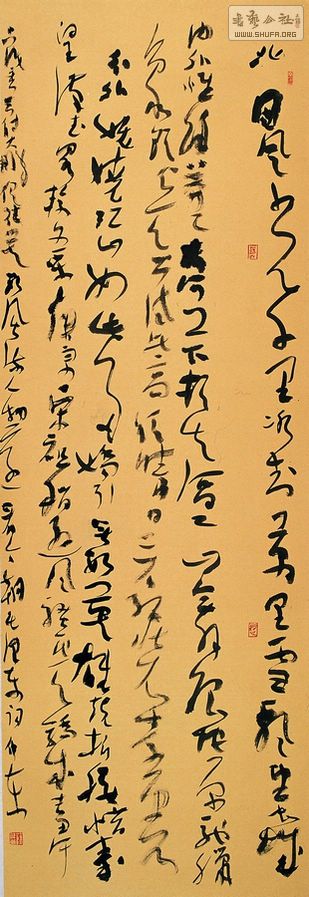 书艺公社
WWW.SHUFA.ORG
北国风光千里冰封万里雪飘望长城
内外惟余莽莽大河上下顿失滔滔山舞银蛇原驰蜡
象欲与天公试比高须晴日看红装素裹
分外妖娆江山如此多娇引无数英雄竞折腰惜秦
皇汉武略输文采唐宗宋祖稍逊风骚一代天骄成吉思汗
只识弯弓射大雕俱往矣数风流人物还看今朝毛泽东词